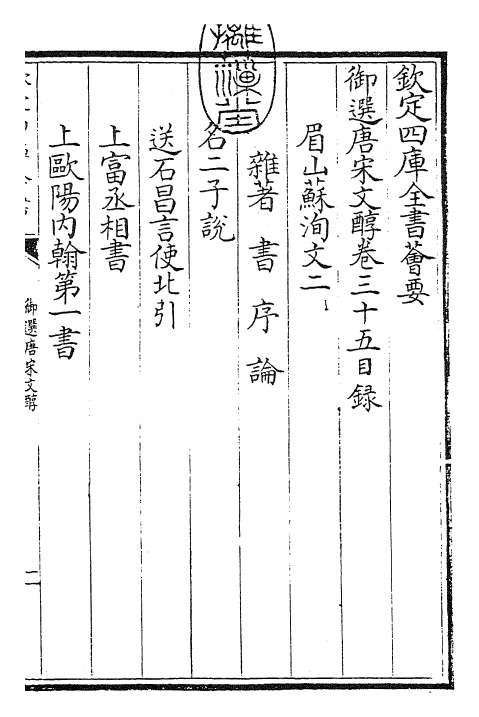 欽定四庫全書薈要
御選唐宋文醇卷三十五目錄
眉山蘇洵文二
雜著 書 序 論
名二子說
送石昌言使北引
上富丞相書
上歐陽内翰第一書
御選唐宋文醇